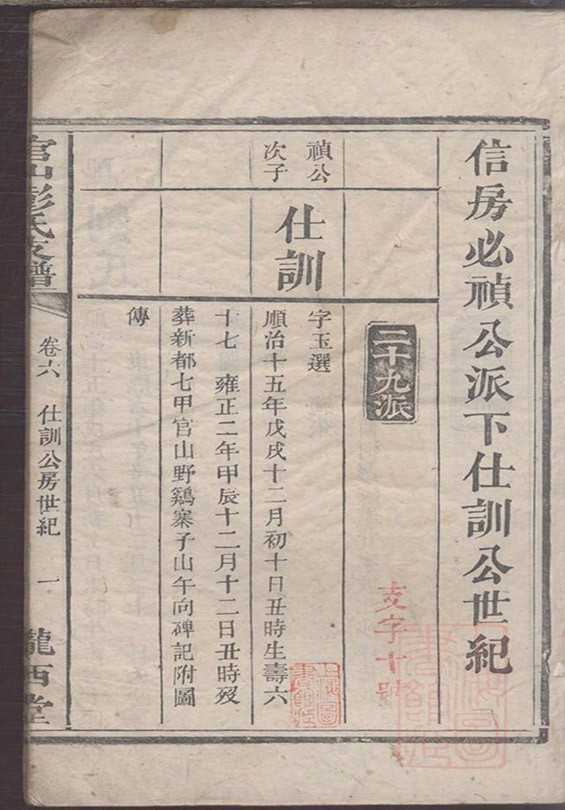 信房必禎公派下仕訓公世紀
二十九派
支字十號
禎公
次子
仕訓
字玉選
順治十五年戊戌十二月初十日丑時生壽六
十七 雍正二年甲辰十二月十二日丑時歿
葬新都七甲官山野鷄寨子山午向碑記附圖
傳
官山彭氏支譜
卷六 仕訓公房世紀 一
隴西堂